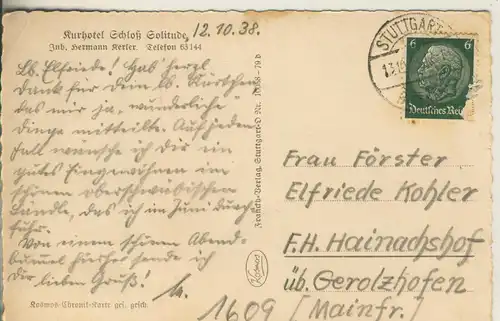 Kurhotel Schloß Solitude,
Inh. Hermann Kerler. Telefon 63144
12.10.38.
Lb. Elfriede! Hab' herzl.
Dank für Dein lb. Kärtchen
das mir ja „wunderliche"
Dinge mitteilte. Auf jeden
Fall wünsche ich Dir ein
gutes Eingewöhnen im
schönen oberschwäbischen
Ländle, das ich im Juni durch-
fuhr.
Von einem schönen Abend-
bummel hierher sende ich
Dir lieben Gruß!
Kosmos-Chromit-Karte ges. gesch.
Verlag, Stuttgart-O Nr.
Kosmos
STUTTGART
6 6
Deutsches Reich
Frau Förster
Elfriede Kohler
F.H. Hainachshof
üb. Gerolzhofen
[Mainfr.]
1609